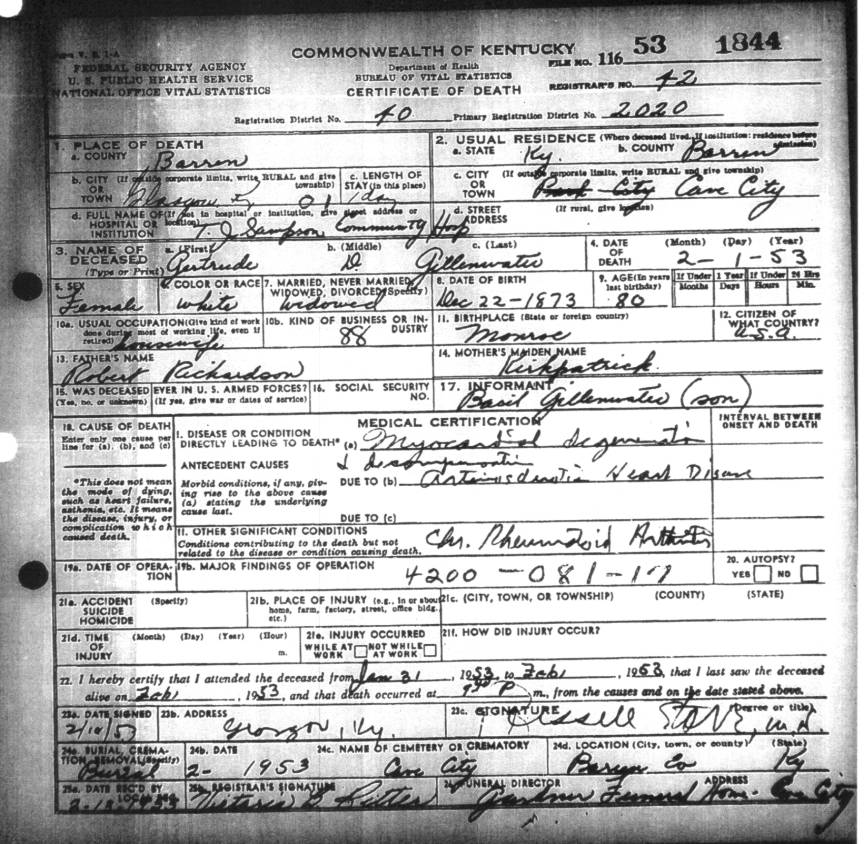 COMMONWEALTH OF KENTUCKY
FILE NO. 116 53 1844
FEDERAL SECURITY AGENCY
U. S. PUBLIC HEALTH SERVICE
NATIONAL OFFICE VITAL STATISTICS
Department of Health
BUREAU OF VITAL STATISTICS
CERTIFICATE OF DEATH
REGISTRAR'S NO. 42
Registration District No. 40 Primary Registration District No. 2020
1. PLACE OF DEATH
a. COUNTY Barren
2. USUAL RESIDENCE (Where deceased lived. If institution: residence before admission)
a. STATE Ky. b. COUNTY Barren
b. CITY (If outside corporate limits, write RURAL and give township) OR TOWN Glasgow Ky
c. LENGTH OF STAY (in this place) 1 day
c. CITY (If outside corporate limits, write RURAL and give township) OR TOWN Park City Cave City
d. FULL NAME OF (If not in hospital or institution, give street address or location) HOSPITAL OR INSTITUTION T. J. Sampson Community Hosp
d. STREET ADDRESS (If rural, give location)
3. NAME OF DECEASED (Type or Print) a. (First) Gertrude b. (Middle) D. c. (Last) Gillenwater
4. DATE OF DEATH (Month) (Day) (Year) 2-1-53
5. SEX Female
6. COLOR OR RACE White
7. MARRIED, NEVER MARRIED, WIDOWED, DIVORCED (Specify) Widowed
8. DATE OF BIRTH Dec 22-1873
9. AGE (In years last birthday) 80 If Under 1 Year Months Days If Under 24 Hrs Hours Min.
10a. USUAL OCCUPATION (Give kind of work done during most of working life, even if retired) housewife
10b. KIND OF BUSINESS OR INDUSTRY 88
11. BIRTHPLACE (State or foreign country) Monroe
12. CITIZEN OF WHAT COUNTRY? U.S.A.
13. FATHER'S NAME Robert Richardson
14. MOTHER'S MAIDEN NAME Kirkpatrick
15. WAS DECEASED EVER IN U. S. ARMED FORCES? (Yes, no, or unknown) (If yes, give war or dates of service)
16. SOCIAL SECURITY NO.
17. INFORMANT Basil Gillenwater (son)
18. CAUSE OF DEATH
Enter only one cause per line for (a), (b), and (c)
MEDICAL CERTIFICATION
INTERVAL BETWEEN ONSET AND DEATH
I. DISEASE OR CONDITION DIRECTLY LEADING TO DEATH* (a) Myocardial degeneration
& decompensation
ANTECEDENT CAUSES
*This does not mean the mode of dying, such as heart failure, asthenia, etc. It means the disease, injury, or complication which caused death.
Morbid conditions, if any, giving rise to the above cause (a) stating the underlying cause last.
DUE TO (b) Arteriosclerotic Heart Disease
DUE TO (c)
11. OTHER SIGNIFICANT CONDITIONS
Conditions contributing to the death but not related to the disease or condition causing death.
Chr. Rheumatoid Arthritis
19a. DATE OF OPERATION
19b. MAJOR FINDINGS OF OPERATION
4200-081-
20. AUTOPSY?
YES NO
21a. ACCIDENT SUICIDE HOMICIDE (Specify)
21b. PLACE OF INJURY (e.g., in or about home, farm, factory, street, office bldg. etc.)
21c. (CITY, TOWN, OR TOWNSHIP) (COUNTY) (STATE)
21d. TIME OF INJURY (Month) (Day) (Year) (Hour) m.
21e. INJURY OCCURRED WHILE AT WORK NOT WHILE AT WORK
21f. HOW DID INJURY OCCUR?
22. I hereby certify that I attended the deceased from Jan 31, 1953, to Feb 1, 1953, that I last saw the deceased
alive on Feb 1, 1953, and that death occurred at P m., from the causes and on the date stated above.
23a. DATE SIGNED 2/10/53
23b. ADDRESS
23c. SIGNATURE (Degree or title) M.D.
24a. BURIAL, CREMATION, REMOVAL (Specify) Burial
24b. DATE 2- 1953
24c. NAME OF CEMETERY OR CREMATORY Cave City
24d. LOCATION (City, town, or county) (State) Barren Co Ky
25a. DATE REC'D BY LOCAL REG.
25b. REGISTRAR'S SIGNATURE
FUNERAL DIRECTOR ADDRESS Gardner Funeral Home- Cave City